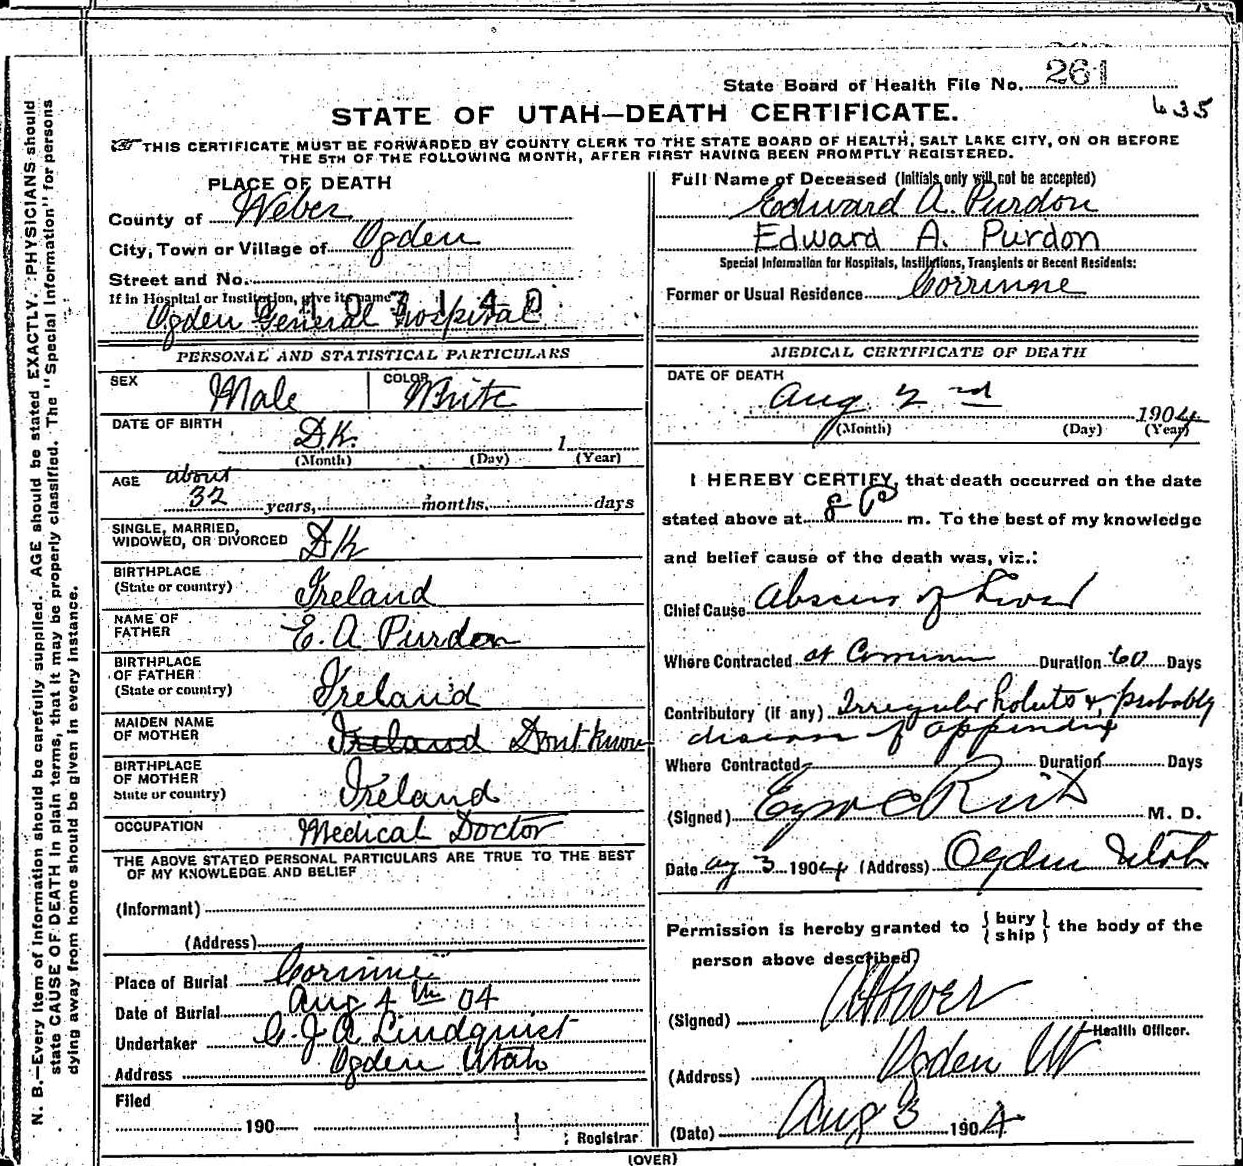 State Board of Health File No. 261
635
STATE OF UTAH—DEATH CERTIFICATE.
THIS CERTIFICATE MUST BE FORWARDED BY COUNTY CLERK TO THE STATE BOARD OF HEALTH, SALT LAKE CITY, ON OR BEFORE
THE 5TH OF THE FOLLOWING MONTH, AFTER FIRST HAVING BEEN PROMPTLY REGISTERED.
PLACE OF DEATH
County of Weber
City, Town or Village of Ogden
Street and No.
If in Hospital or Institution, give its name
Ogden General Hospital
Full Name of Deceased (Initials only will not be accepted)
Edward A. Purdon
Edward A. Purdon
Special Information for Hospitals, Institutions, Transients or Recent Residents:
Former or Usual Residence Corrinne
PERSONAL AND STATISTICAL PARTICULARS
SEX Male COLOR White
DATE OF BIRTH D.K. 1
(Month) (Day) (Year)
AGE about
32 years, months, days
SINGLE, MARRIED,
WIDOWED, OR DIVORCED DK
BIRTHPLACE
(State or country) Ireland
NAME OF
FATHER E. A Purdon
BIRTHPLACE
OF FATHER
(State or country) Ireland
MAIDEN NAME
OF MOTHER Ireland Dont know
BIRTHPLACE
OF MOTHER
State or country) Ireland
OCCUPATION Medical Doctor
THE ABOVE STATED PERSONAL PARTICULARS ARE TRUE TO THE BEST
OF MY KNOWLEDGE AND BELIEF
(Informant)
(Address)
Place of Burial Corinne
Date of Burial Aug 4th 04
Undertaker C. J. A. Lindquist
Address Ogden Utah
Filed
190
Registrar
MEDICAL CERTIFICATE OF DEATH
DATE OF DEATH
Aug 2nd 1904
(Month) (Day) (Year)
I HEREBY CERTIFY, that death occurred on the date
stated above at 8 P m. To the best of my knowledge
and belief cause of the death was, viz.:
Chief Cause Abscess of Liver
Where Contracted at Duration 60 Days
Contributory (if any) Irregular habits & probably
disease of appendix
Where Contracted Duration Days
(Signed) M. D.
Date Aug 3 1904 (Address) Ogden Utah
Permission is hereby granted to { bury
ship } the body of the
person above described
(Signed)
Health Officer.
(Address) Ogden Ut
(Date) Aug 3 1904
(OVER)
N. B.—Every item of information should be carefully supplied. AGE should be stated EXACTLY. PHYSICIANS should
state CAUSE OF DEATH in plain terms, that it may be properly classified. The "Special Information" for persons
dying away from home should be given in every instance.